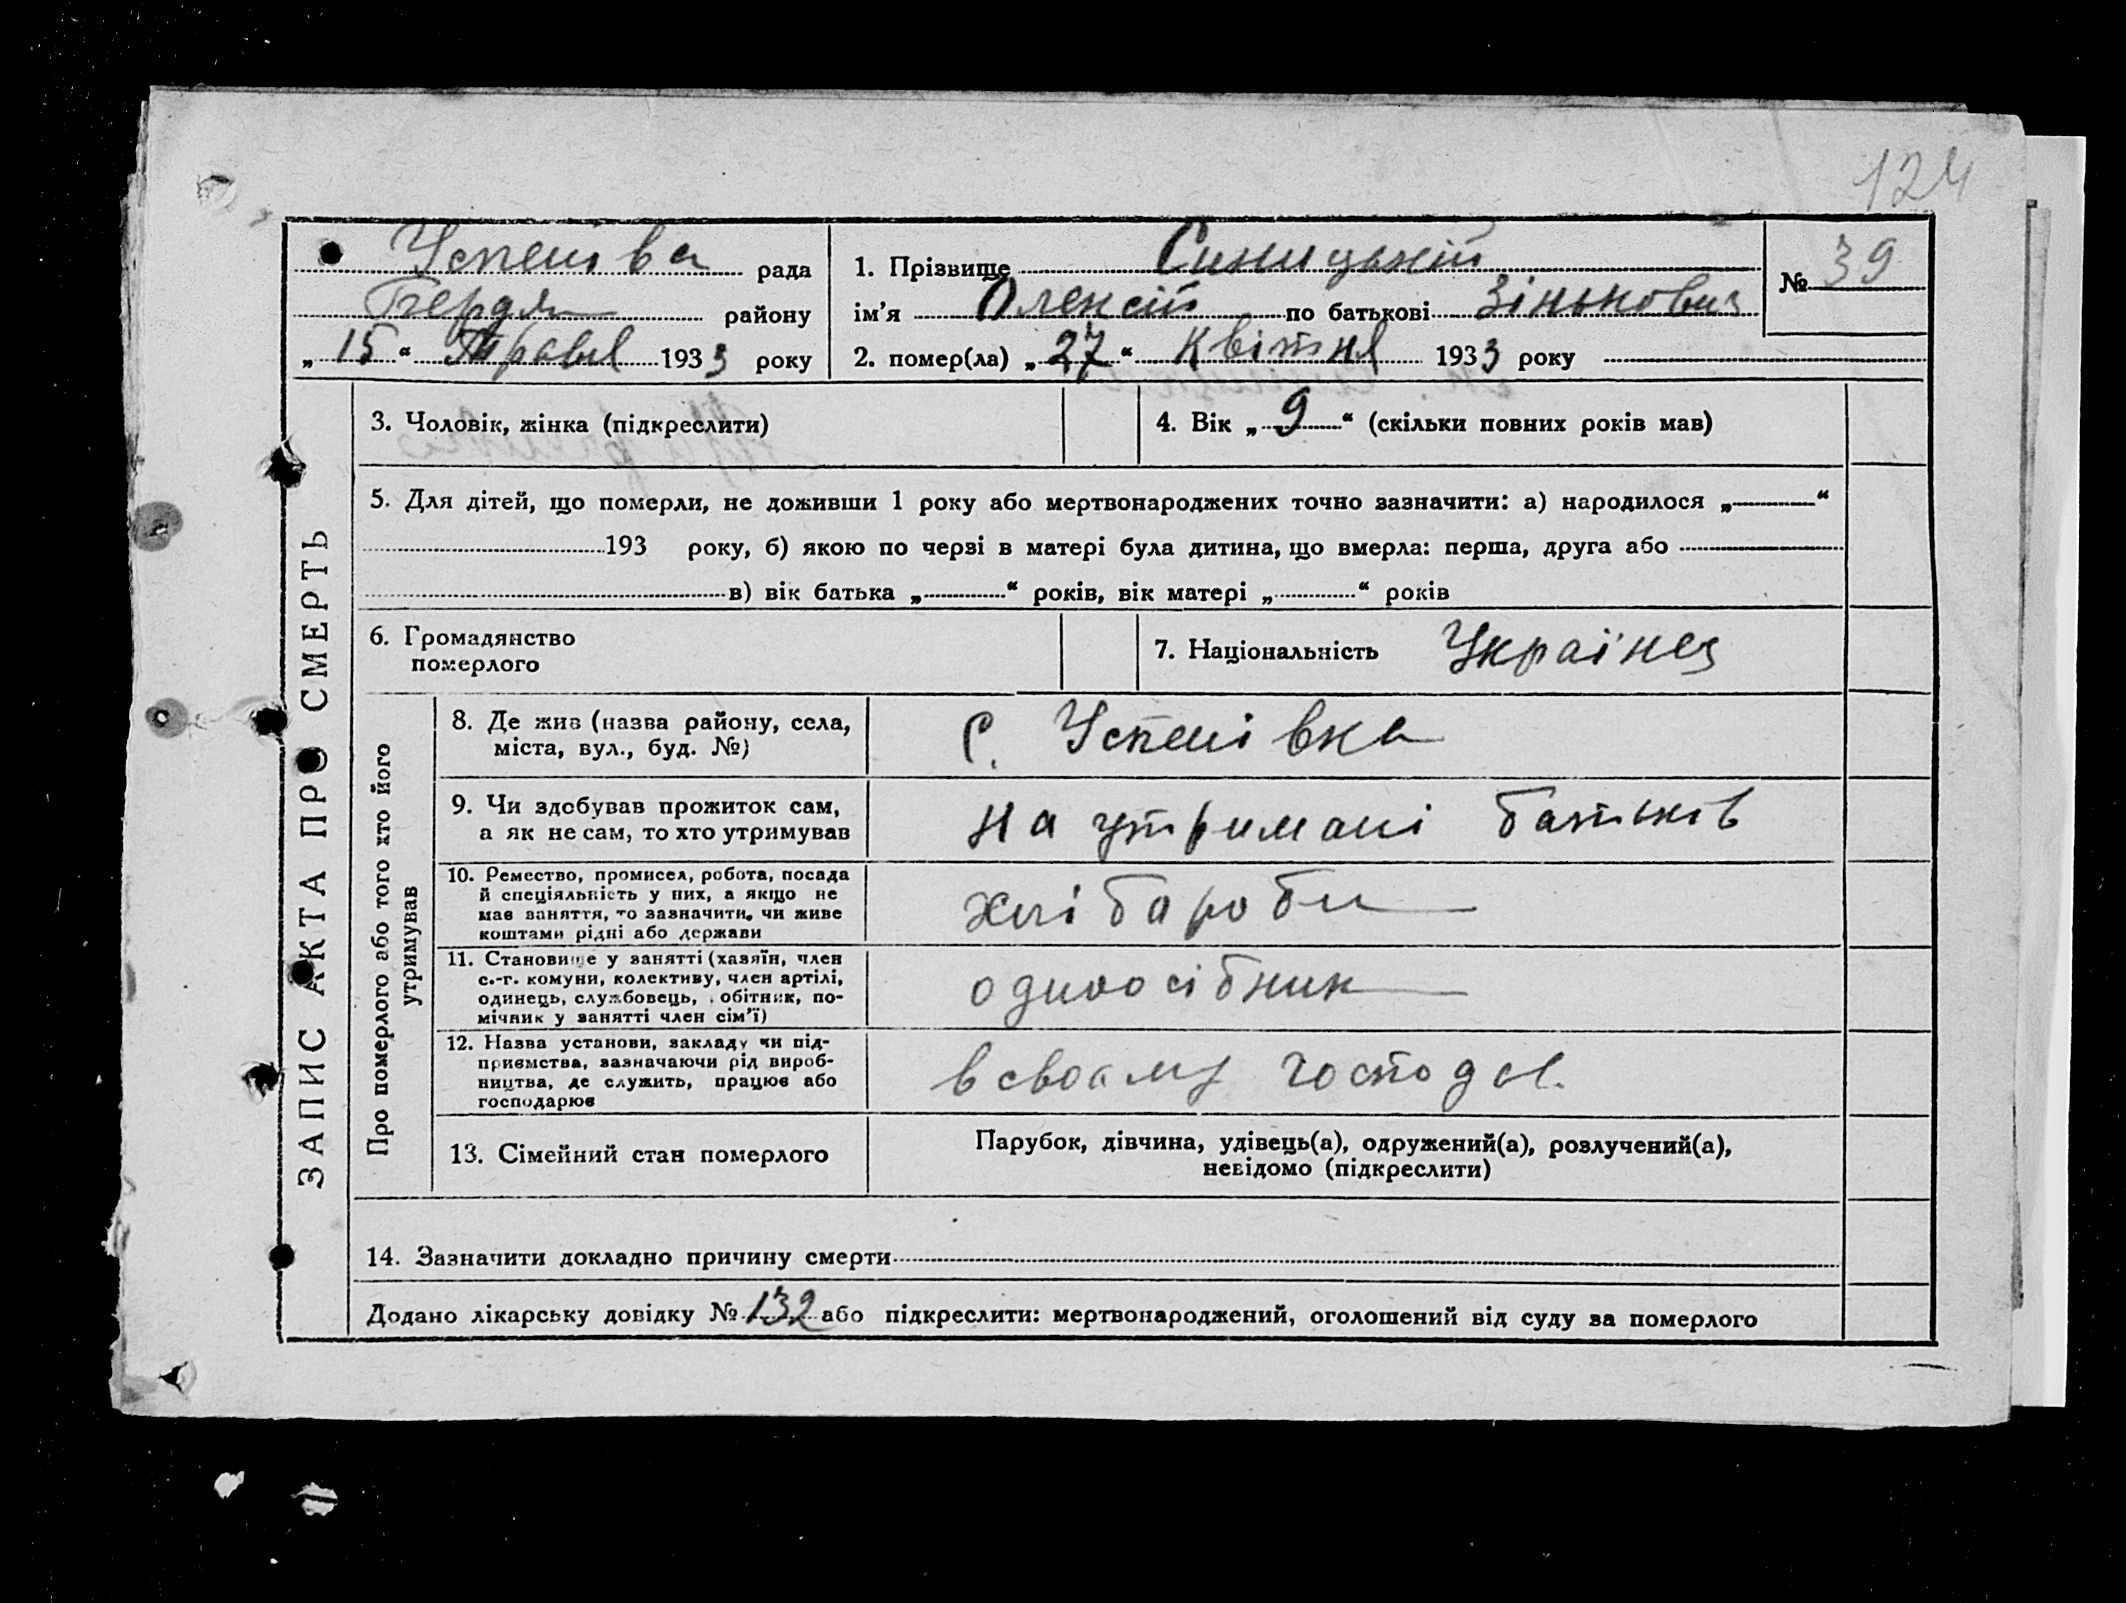 124
Успенівка рада
Бердян району
„ 15 “ Травня 1933 року
1. Прізвище Синицький
ім’я Олексій по батькові Зінькович
2. помер(ла) „ 27 “ Квітня 1933 року
№ 39
ЗАПИС АКТА ПРО СМЕРТЬ
3. Чоловік, жінка (підкреслити)
4. Вік „ 9 “ (скільки повних років мав)
5. Для дітей, що померли, не доживши 1 року або мертвонароджених точно зазначити: а) народилося „ “
193 року, б) якою по черзі в матері була дитина, що вмерла: перша, друга або
в) вік батька „ “ років, вік матері „ “ років
6. Громадянство
померлого
7. Національність Українец
Про померлого або того хто його
утримував
8. Де жив (назва району, села,
міста, вул., буд. №)
с. Успенівка
9. Чи здобував прожиток сам,
а як не сам, то хто утримував
на утримані батьків
10. Ремество, промисел, робота, посада
й спеціяльність у них, а якщо не
мав заняття, то зазначити, чи живе
коштами рідні або держави
хлібароби
11. Становище у занятті (хазяїн, член
с.-г. комуни, колективу, член артілі,
одинець, службовець, обітник, по-
мічник у занятті член сім’ї)
одноосібник
12. Назва установи, закладу чи під-
приємства, зазначаючи рід вироб-
ництва, де служить, працює або
господарює
в своаму господ.
13. Сімейний стан померлого
Парубок, дівчина, удівець(а), одружений(а), розлучений(а),
невідомо (підкреслити)
14. Зазначити докладно причину смерти
Додано лікарську довідку № 132 або підкреслити: мертвонароджений, оголошений від суду за померлого